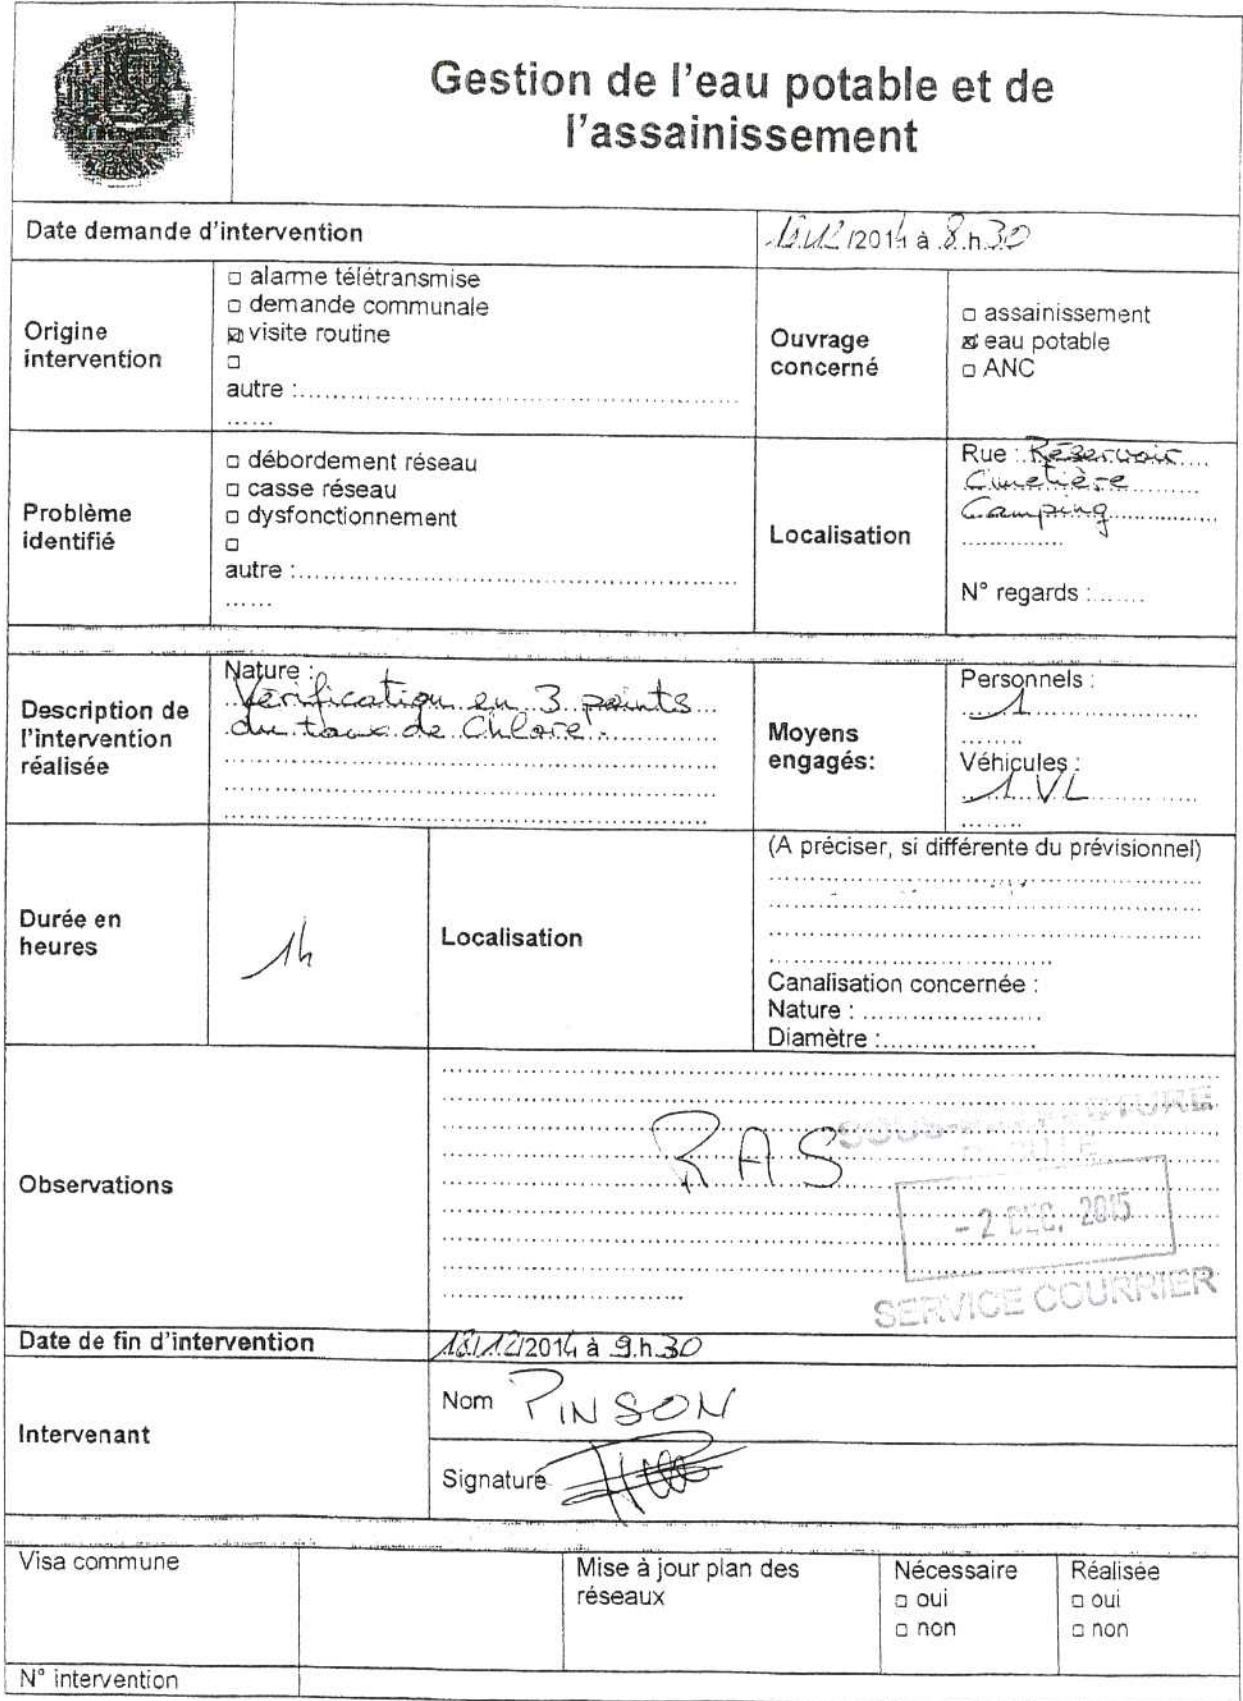 Gestion de l'eau potable et de
l'assainissement
Date demande d'intervention
/2014 à 8.h.30
Origine
intervention
□ alarme télétransmise
□ demande communale
☒ visite routine
□
autre :
Ouvrage
concerné
□ assainissement
☒ eau potable
□ ANC
Problème
identifié
□ débordement réseau
□ casse réseau
□ dysfonctionnement
□
autre :
Localisation
Rue : Réservoir
Cimetière
Camping
N° regards :
Description de
l'intervention
réalisée
Nature :
Vérification en 3 points
du taux de Chlore.
Moyens
engagés:
Personnels :
1
Véhicules :
1 VL
Durée en
heures
1h
Localisation
(A préciser, si différente du prévisionnel)
Canalisation concernée :
Nature :
Diamètre :
Observations
RAS
- 2 DEC. 2015
SERVICE COURRIER
Date de fin d'intervention
18/12/2014 à 9.h.30
Intervenant
Nom PINSON
Signature
Visa commune
Mise à jour plan des
réseaux
Nécessaire
□ oui
□ non
Réalisée
□ oui
□ non
N° intervention